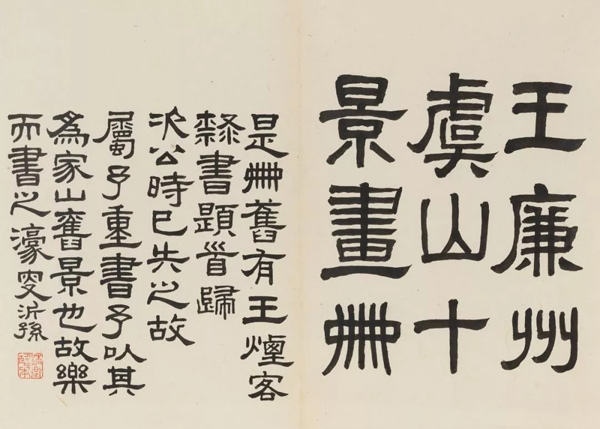 王廉州
虞山十
景畫冊
是冊舊有王煙客
隸書題首歸
次公時已失之故
屬予重書予以其
爲家山舊景也故樂
而書之濠叟沂孫